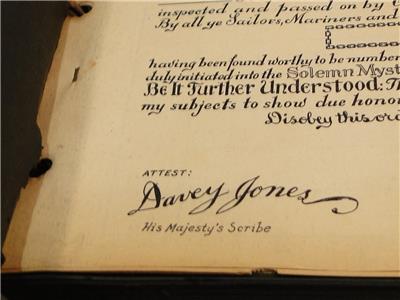 inspected and passed on by
By all ye Sailors, Mariners and
having been found worthy to be number
duly initiated into the Solemn Myst
Be It Further Understood: Th
my subjects to show due hono
Disobey this or
ATTEST:
Davey Jones
His Majesty's Scribe